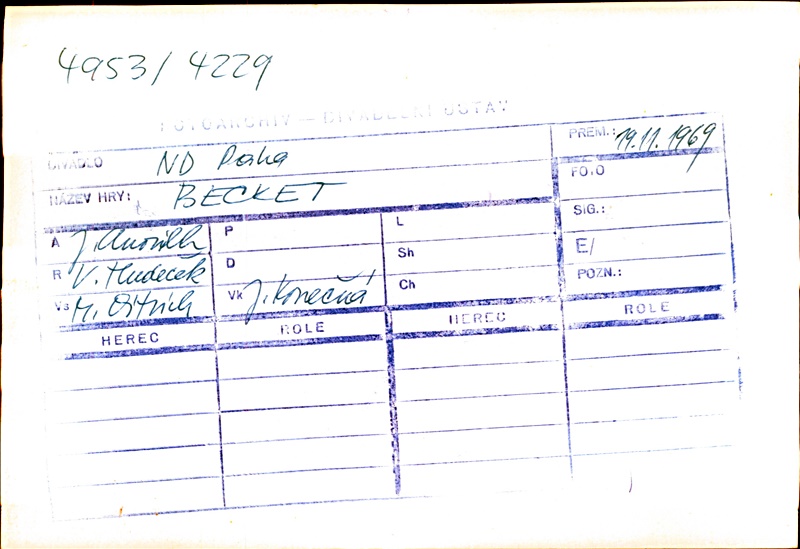 4953/4229
FOTOARCHIV – DIVADELNÍ ÚSTAV
DIVADLO ND Praha
PREM.: 19.11.1969
NÁZEV HRY: BECKET
FOTO
SIG.:
E/
POZN.:
A J. P L
R V. Hudeček D Sh
Vs M. Vk J. Konečná Ch
HEREC ROLE HEREC ROLE